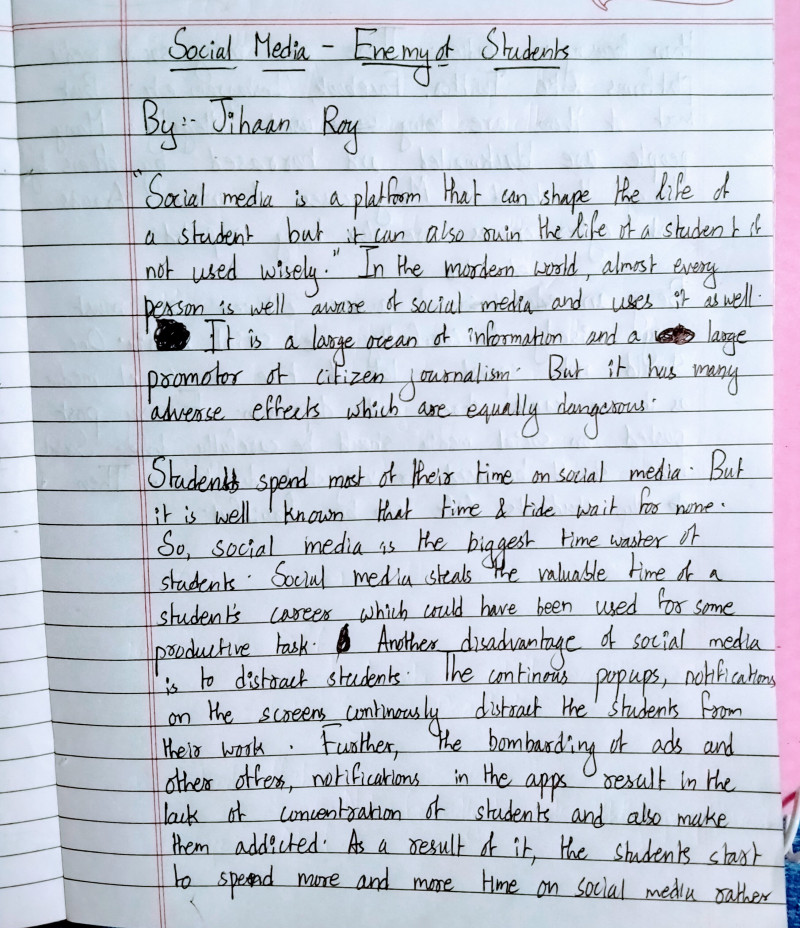 Social Media - Enemy of Students
By:- Jihaan Roy
"Social media is a platform that can shape the life of
a student but it can also ruin the life of a student if
not used wisely." In the mordern world, almost every
person is well aware of social media and uses it as well.
It is a large ocean of information and a large
promotor of citizen journalism. But it has many
adverse effects which are equally dangerous.
Students spend most of their time on social media. But
it is well known that time & tide wait for none.
So, social media is the biggest time waster of
students. Social media steals the valuable time of a
student's career which could have been used for some
productive task. Another disadvantage of social media
is to distract students. The continous popups, notifications
on the screens continously distract the students from
their work. Further, the bombarding of ads and
other offers, notifications in the apps result in the
lack of concentration of students and also make
them addicted. As a result of it, the students start
to spend more and more time on social media rather